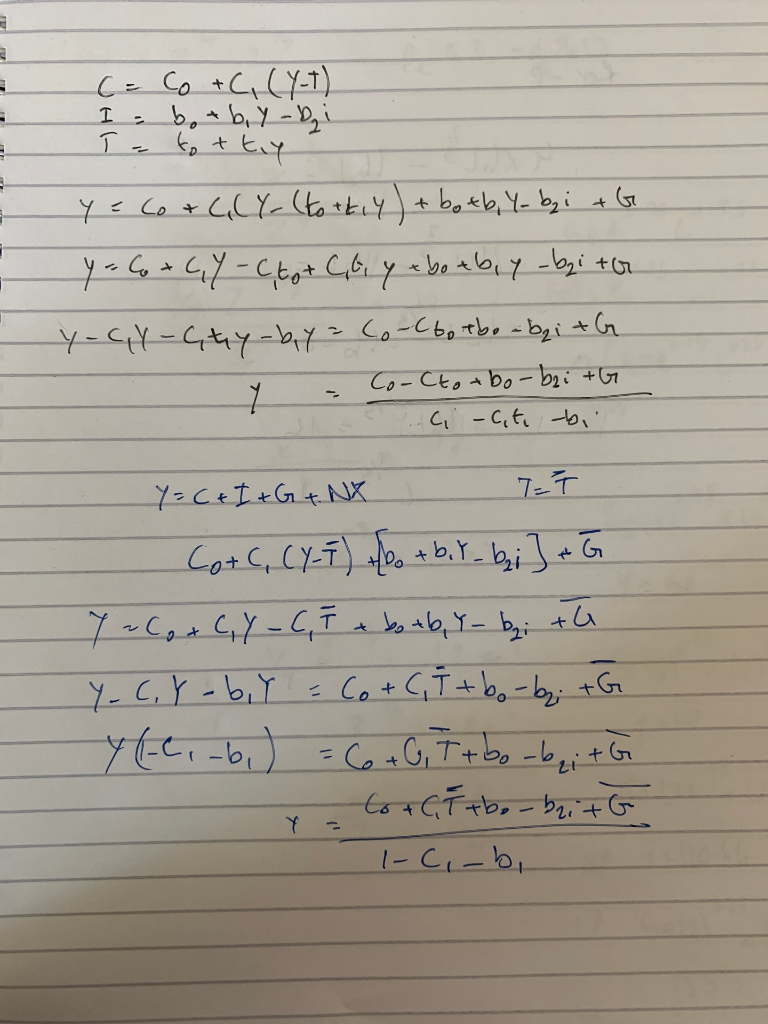 C = C₀ + C₁ (Y-T)
I = b₀ + b₁ Y - b₂i
T = t₀ + t₁y
y = C₀ + C₁(Y-(t₀+t₁y) + b₀+b₁Y- b₂i + G
y = C₀ + C₁Y - C₁t₀+ C₁t₁ y + b₀ + b₁ y - b₂i + G
y - C₁Y - C₁t₁y - b₁y = C₀ - Ct₀ + b₀ - b₂i + G
y = C₀ - Ct₀ + b₀ - b₂i + G
C₁ - C₁t₁ - b₁
Y = C + I + G + NX T = T̄
C₀ + C₁ (Y-T̄) + [b₀ + b₁Y - b₂i] + Ḡ
Y = C₀ + C₁Y - C₁T̄ + b₀ + b₁Y - b₂i + Ḡ
Y - C₁Y - b₁Y = C₀ + C₁T̄ + b₀ - b₂i + Ḡ
Y(1-C₁ - b₁) = C₀ + C₁T̄ + b₀ - b₂i + Ḡ
Y = C₀ + C₁T̄ + b₀ - b₂i + Ḡ
1 - C₁ - b₁